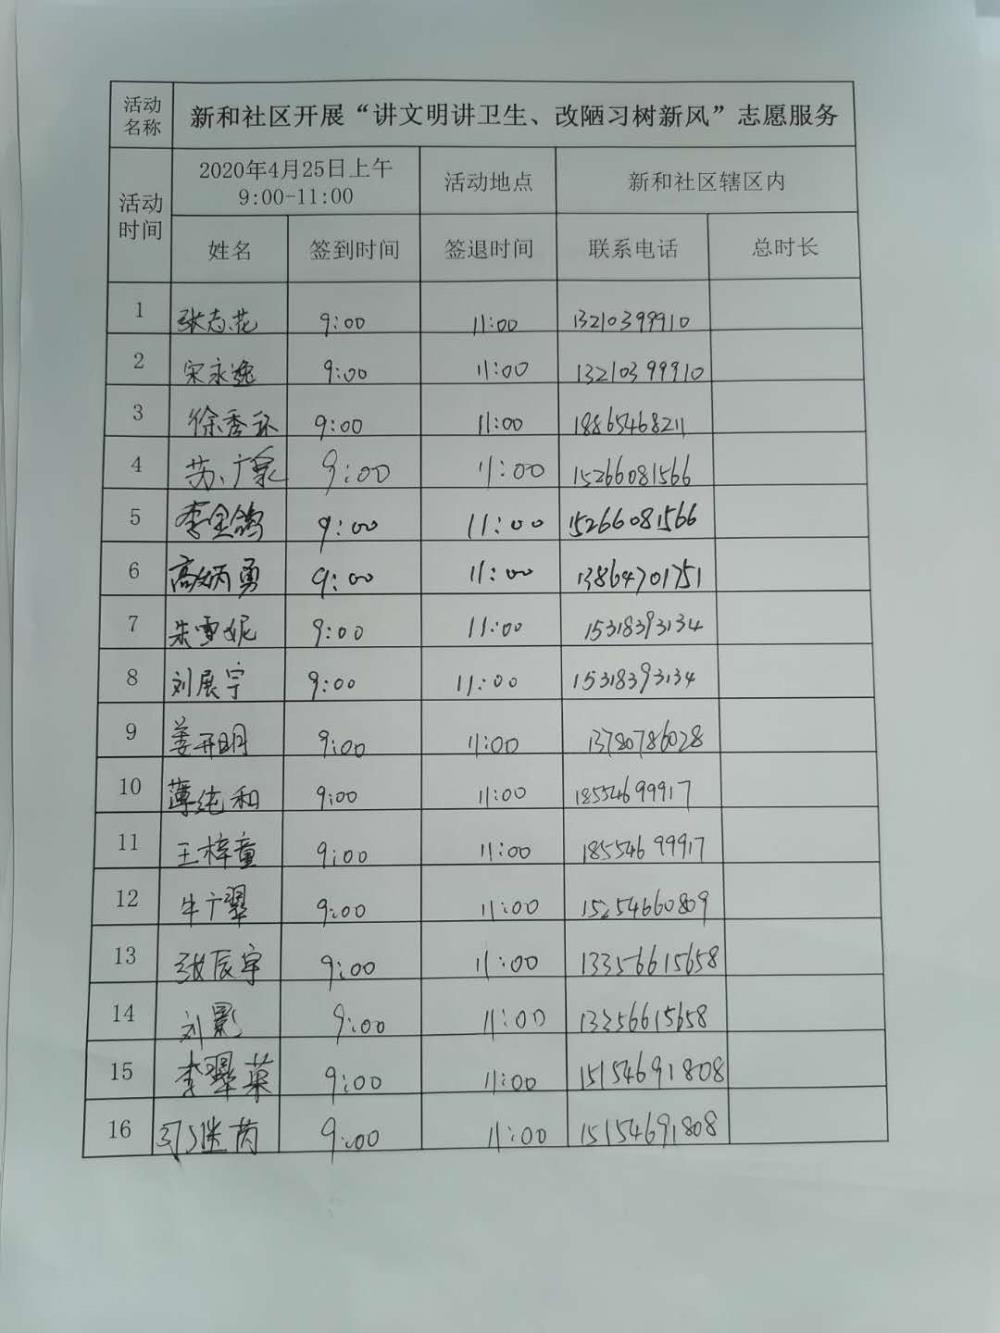 活动名称 新和社区开展“讲文明讲卫生、改陋习树新风”志愿服务
活动时间 2020年4月25日上午9:00-11:00 活动地点 新和社区辖区内
姓名 签到时间 签退时间 联系电话 总时长
1 张志花 9:00 11:00 13210399910
2 宋永逸 9:00 11:00 13210399910
3 徐秀环 9:00 11:00 18865468211
4 苏广泉 9:00 11:00 15266081566
5 李金鸽 9:00 11:00 15266081566
6 高炳勇 9:00 11:00 13864701751
7 朱雪妮 9:00 11:00 15318393134
8 刘展宇 9:00 11:00 15318393134
9 姜开明 9:00 11:00 13780786028
10 薄纯和 9:00 11:00 18554699917
11 王梓童 9:00 11:00 18554699917
12 牛广翠 9:00 11:00 15254660809
13 张辰宇 9:00 11:00 13356615658
14 刘影 9:00 11:00 13356615658
15 李翠菊 9:00 11:00 15154691808
16 9:00 11:00 15154691808